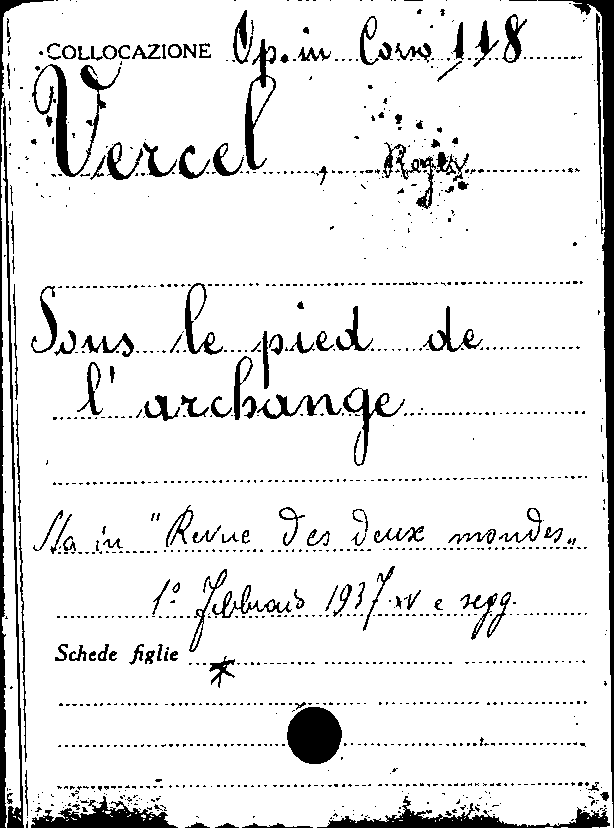 COLLOCAZIONE Op. in Corso 118
Vercel, Roger
Sous le pied de
l'archange
Sta in "Revue des deux mondes„
1° Febbraio 1937 XV e segg.
Schede figlie *